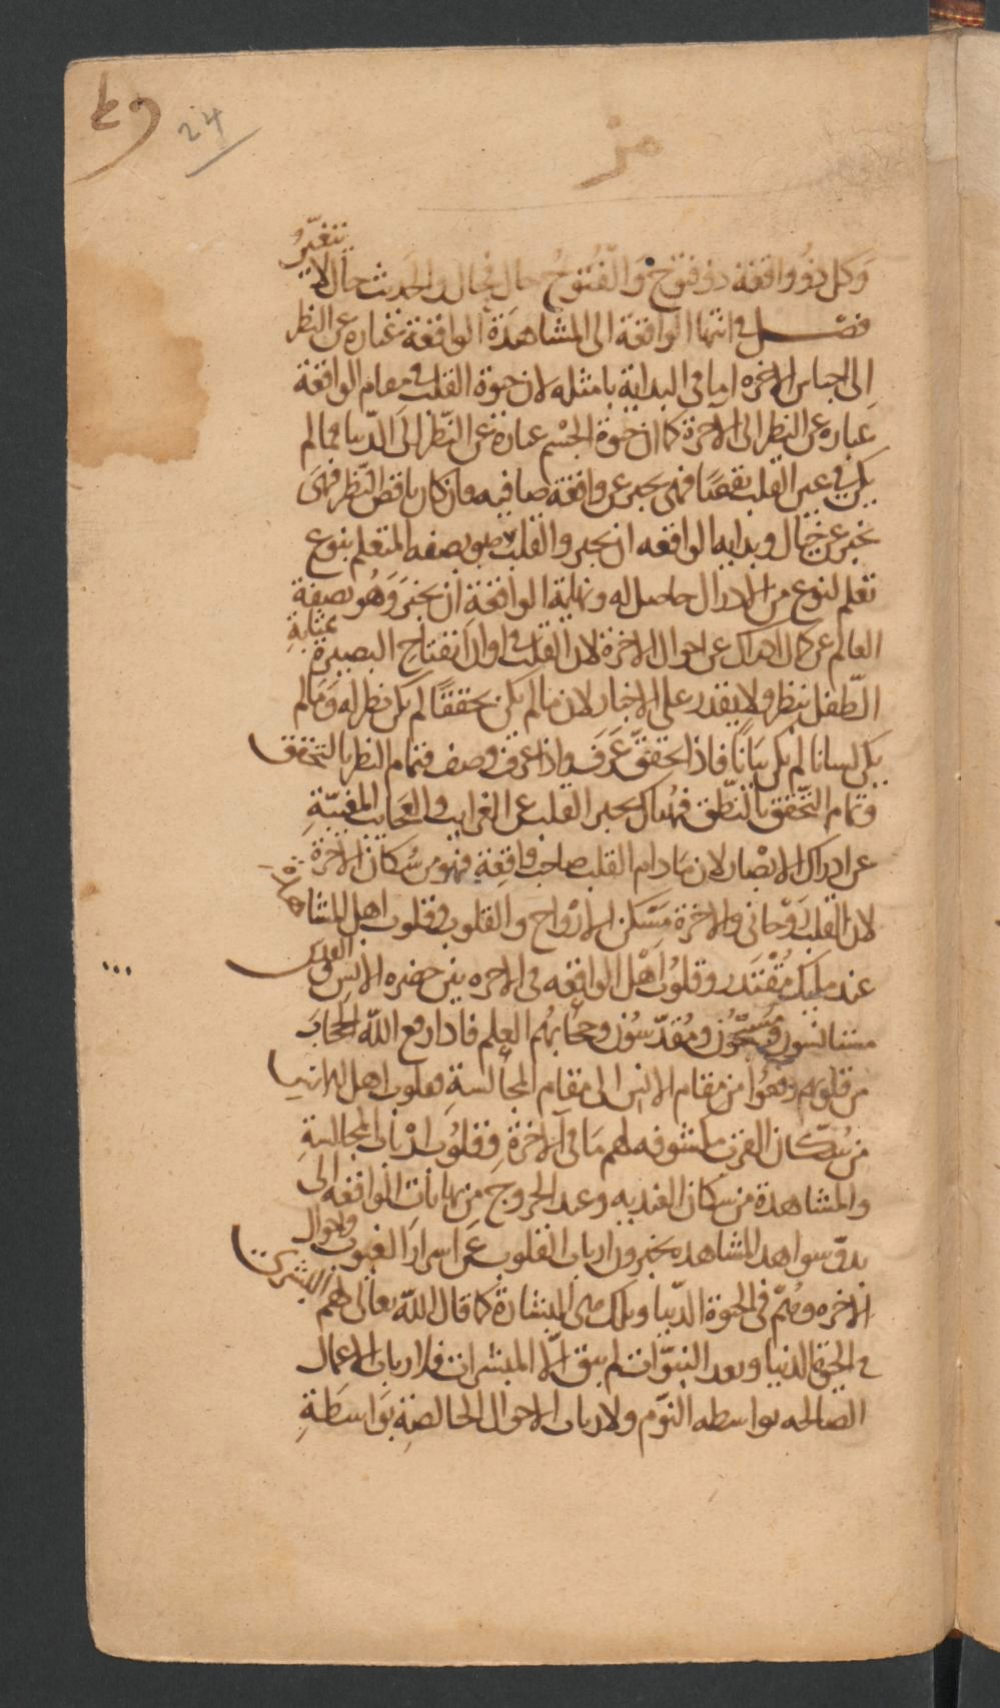 24
وَكل ذوُ واقعة ذو فتوح وَالفُتوحُ حال بحال والحديث حال لا يتغيّرُ
فصـــل في انتها الواقعة الى المشاهَدة الواقعة عباره عن النظر
الى الاخره اما في البداية لان حيوة القلب في مقام الواقعة
عباره عن النظر الى الاخرة كما ان حيوة الجسْم عبارة عن النّظر الى الدّنيا فما لم
يكن في عين القلب نقصًا فهى تخبر عن واقعة صافيه وان كان ناقص النّظر فهى
تخبر عن خيال وبدايه الواقعه ان يخبر والقلب بصفه المتعلم بنوع
تعلم لنوع من حاصل له ونهاية الواقعة ان يخبرَ وَهُو بصفة
العالم عن كل عن احوال الاخرة لان القلب في اوان انفتاح البصيرة بمثابةِ
الطّفل ينظر ولا يقدر على الاخبار لان ما لم يكن تحققًا لم يكن نظر له وَما لم
يكن لسانا لم يكن بيَانًا فاذا تحققّ عَرَفَ واذا عرف وصف فتمام النظر بالتحقق
وتمام التّحقق بالنّطق فهناك يخبر القلب عن الغرايب والعجَايب المغيبّةِ
عن ادراك الابصْار لان مَا دام القلب صاحب واقِعةٍ فهو من سُكان الآخرة
لان القلب رَوحَانى والاخرة مَسْكن الارْواح والقلوب وقلوب اهل المشاهدة
عند مليك مُقْتَدر وقلوُب اهْل الواقعه في الاخره بين حضره الانس والقدس
مستانسون ومُسَبّحُون ومُقدّسُون وحجابهُم العِلم فاذا رفع اللهُ الحجابَ
من قلوبهم من مقام الانس الى مقام المجَالسةِ فقلوب اهل
من سُكان القرب مكشوفه لهم مَا في الآخرةِ وقلوُب ارْباب المجالسةِ
والمشاهدة من سكان العنديه وعند الخروج من نهايات الواقعه الى
شواهد المشاهده يخبرون ارباب القلوب عَن اسرار الغيوب واحوال
الاخره وهُمْ فى الحيوة الدّنيا وتلك هى المبشّارة كما قال الله تعالى لهم البشرى
في الحيوة الدنيا وبعد النبوّات لم يبق الّا المبشرات فلارباب الاعمال
الصالحه بواسطه النوَم ولارباب الاحوال الخالصةِ بوَاسطَةِ